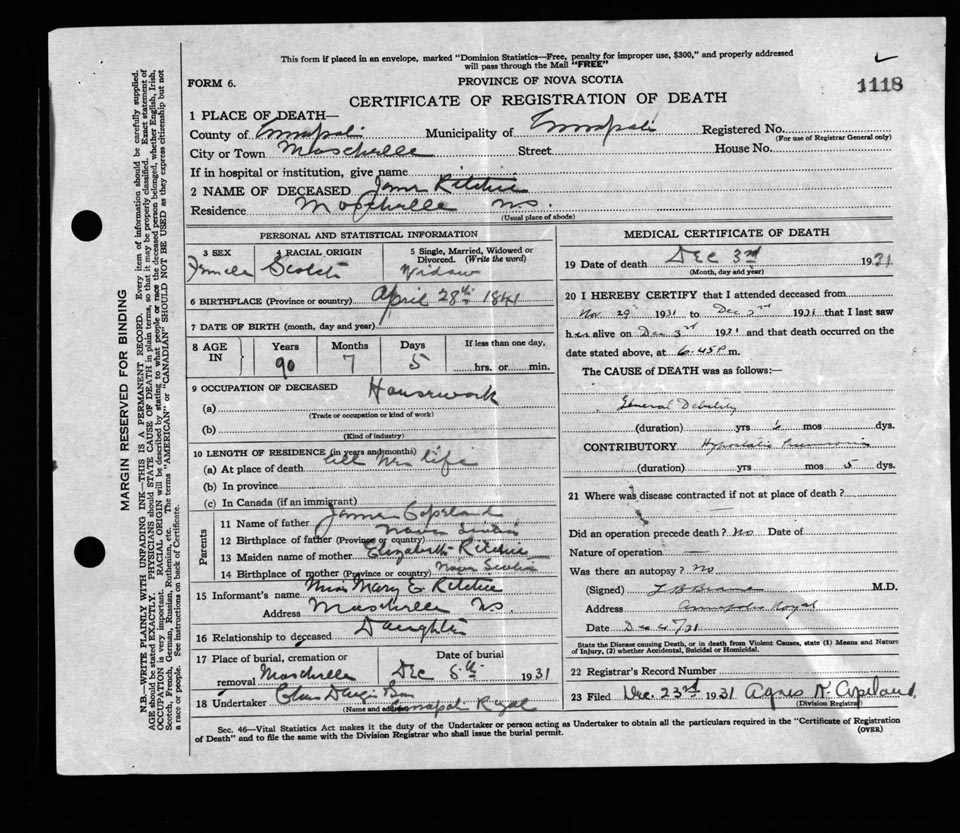 This form if placed in an envelope, marked "Dominion Statistics—Free, penalty for improper use, $300," and properly addressed
will pass through the Mail "FREE"
1118
FORM 6.
PROVINCE OF NOVA SCOTIA
CERTIFICATE OF REGISTRATION OF DEATH
1 PLACE OF DEATH—
County of Annapolis Municipality of Annapolis Registered No.
(For use of Registrar General only)
City or Town Moschelle Street House No.
If in hospital or institution, give name
2 NAME OF DECEASED Ritchie
Residence Moschelle N.S.
(Usual place of abode)
PERSONAL AND STATISTICAL INFORMATION
3 SEX Female
4 RACIAL ORIGIN Scotch
5 Single, Married, Widowed or Divorced. (Write the word) Widow
6 BIRTHPLACE (Province or country) April 28th 1841
7 DATE OF BIRTH (month, day and year)
8 AGE IN Years 90 Months 7 Days 5 If less than one day, hrs. or min.
9 OCCUPATION OF DECEASED Housework
(a)
(Trade or occupation or kind of work)
(b)
(Kind of industry)
10 LENGTH OF RESIDENCE (in years and months)
(a) At place of death All her life
(b) In province
(c) In Canada (if an immigrant)
Parents
11 Name of father James Copeland
12 Birthplace of father (Province or country) Nova Scotia
13 Maiden name of mother Elizabeth Ritchie
14 Birthplace of mother (Province or country) Nova Scotia
15 Informant's name Miss Mary E. Ritchie
Address Moschelle N.S.
16 Relationship to deceased Daughter
17 Place of burial, cremation or removal Moschelle
Date of burial Dec 5th 1931
18 Undertaker Annapolis Royal
(Name and address)
MEDICAL CERTIFICATE OF DEATH
19 Date of death Dec 3rd 1931
(Month, day and year)
20 I HEREBY CERTIFY that I attended deceased from
Nov 29 1931 to Dec 3rd 1931 that I last saw
her alive on Dec 3rd 1931 and that death occurred on the
date stated above, at 6.45 P m.
The CAUSE of DEATH was as follows:—
General Debility
(duration) yrs mos dys.
CONTRIBUTORY Hypostatic Pneumonia
(duration) yrs mos 5 dys.
21 Where was disease contracted if not at place of death?
Did an operation precede death? No Date of
Nature of operation —
Was there an autopsy? No
(Signed) M.D.
Address Annapolis Royal
Date Dec 4/31
State the Disease causing Death, or in death from Violent Causes, state (1) Means and Nature
of Injury, (2) whether Accidental, Suicidal or Homicidal.
22 Registrar's Record Number
23 Filed Dec. 23rd 1931 Agnes Copeland
(Division Registrar)
Sec. 46—Vital Statistics Act makes it the duty of the Undertaker or person acting as Undertaker to obtain all the particulars required in the "Certificate of Registration
of Death" and to file the same with the Division Registrar who shall issue the burial permit.
(OVER)
MARGIN RESERVED FOR BINDING
N.B.—WRITE PLAINLY WITH UNFADING INK—THIS IS A PERMANENT RECORD. Every item of information should be carefully supplied.
AGE should be stated EXACTLY. PHYSICIANS should STATE CAUSE OF DEATH in plain terms, so that it may be properly classified. Exact statement of
OCCUPATION is very important. RACIAL ORIGIN will be described by stating to what people or race the deceased person belonged, whether English, Irish,
Scotch, French, German, Russian, Ruthenian, etc. The terms "AMERICAN" or "CANADIAN" SHOULD NOT BE USED as they express citizenship but not
a race or people. See instructions on back of Certificate.